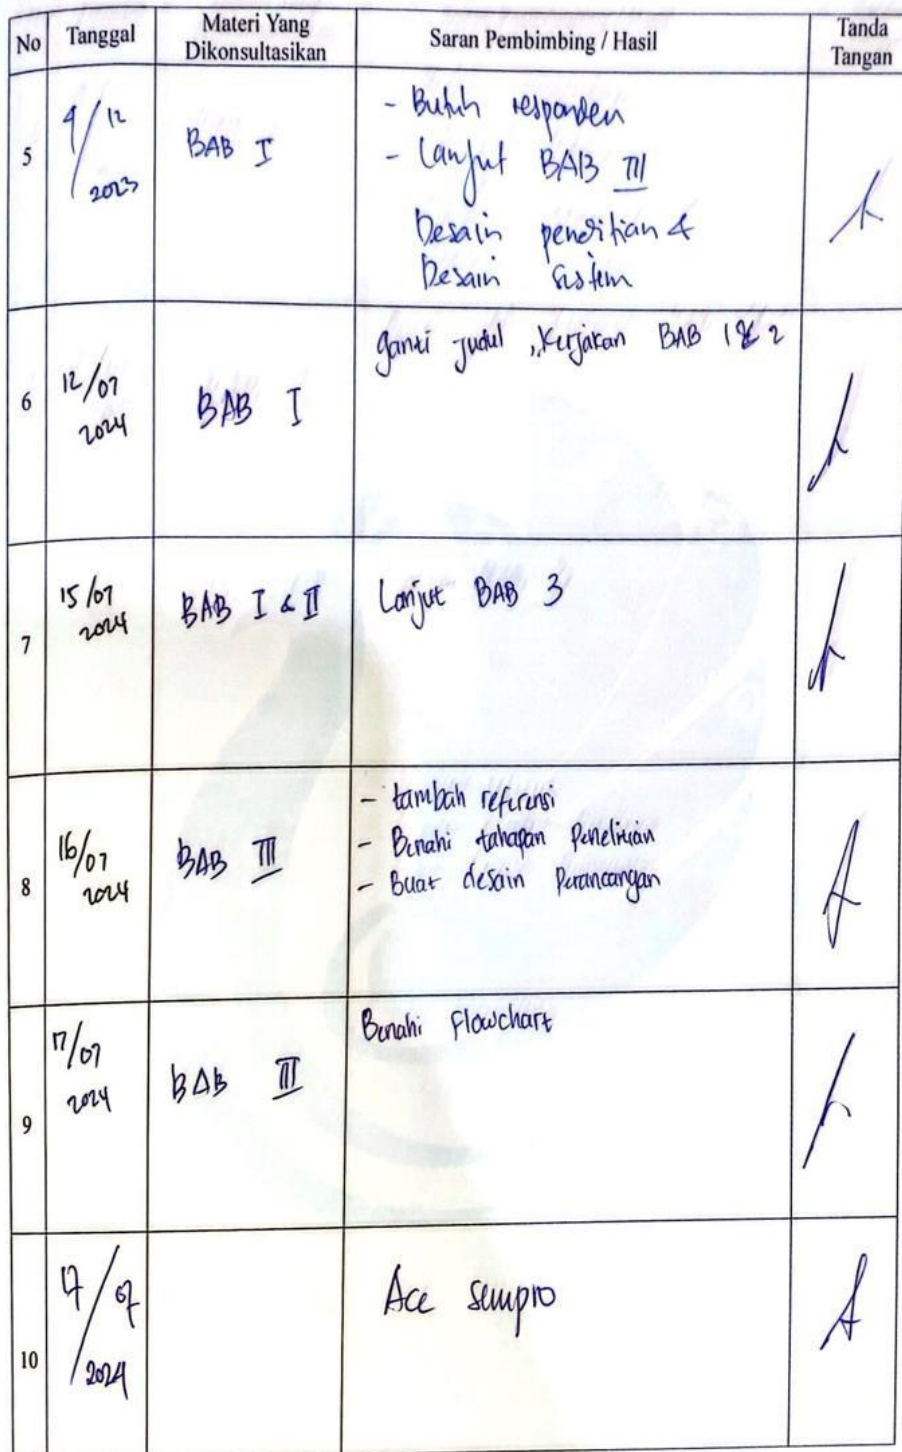 No
Tanggal
Materi Yang
Dikonsultasikan
Saran Pembimbing / Hasil
Tanda
Tangan
5
4/12
2023
BAB I
- Butuh responden
- Lanjut BAB III
Desain penelitian &
Desain sistem
6
12/07
2024
BAB I
ganti judul, Kerjakan BAB 1 & 2
7
15/07
2024
BAB I & II
Lanjut BAB 3
8
16/07
2024
BAB III
- tambah referensi
- Benahi tahapan Penelitian
- Buat desain Perancangan
9
17/07
2024
BAB III
Benahi Flowchart
10
17/07
2024
Acc sempro